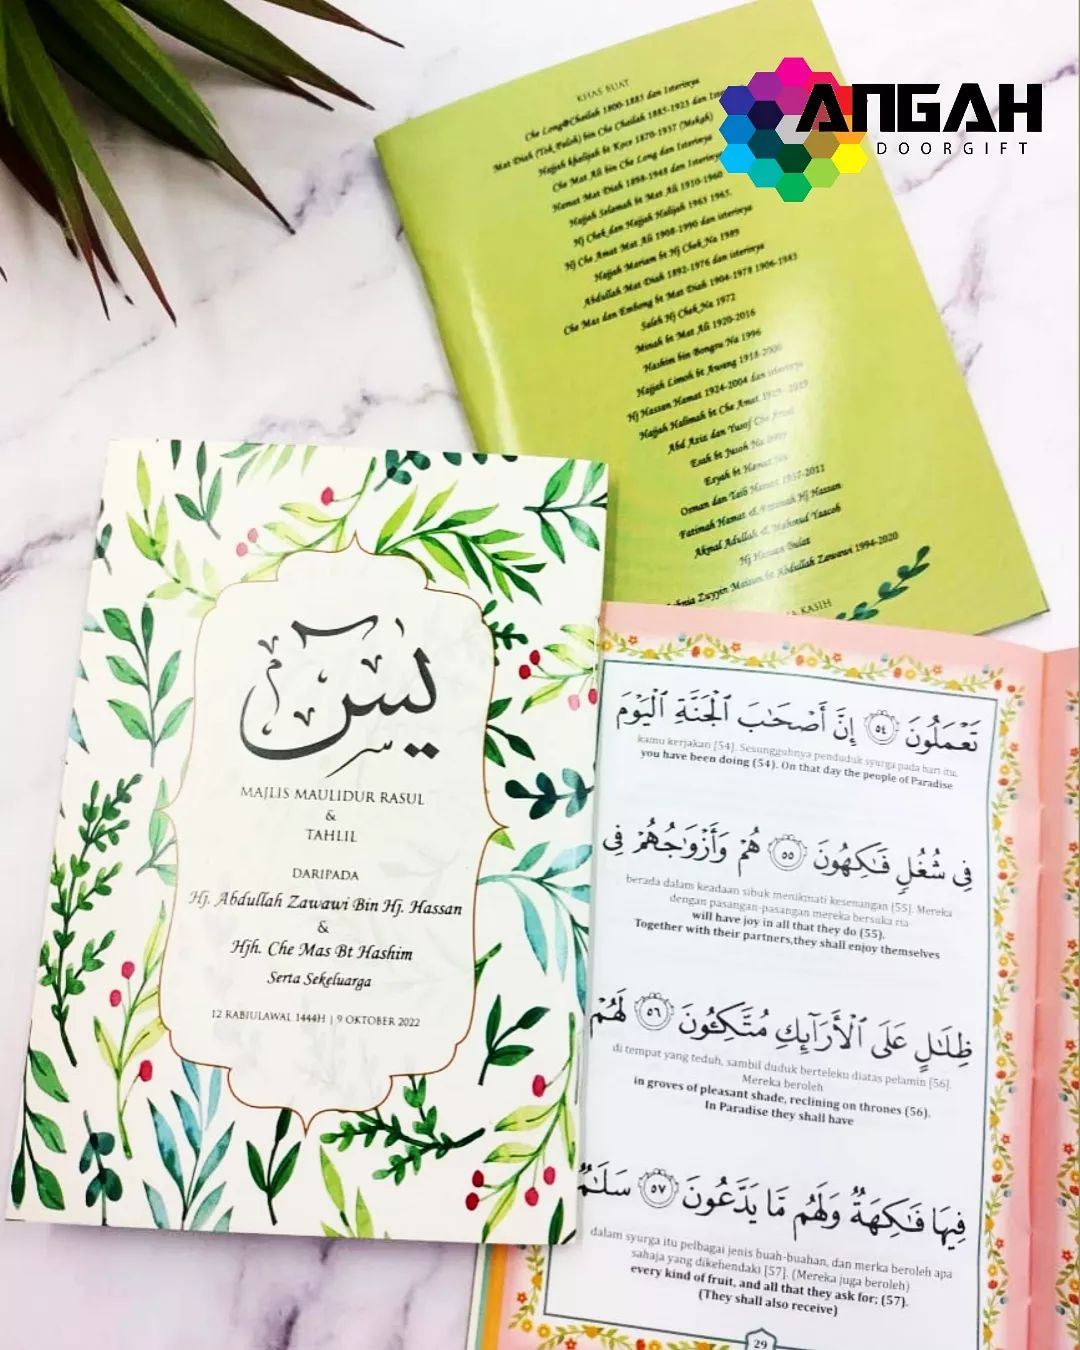 ANGAH
DOORGIFT
KHAS BUAT
Che Long@Cheilah 1800-1885 dan Isterinya
Mat Diah (Tok Paloh) bin Che Cheilah 1885-1925 dan
Hajjah Khalijah bt Koce 1870-1937 (Mekah)
Che Mat Ali bin Che Long dan Isterinya
Hamat Mat Diah 1898-1948 dan Isterinya
Hajjah Salamah bt Mat Ali 1910-1960
Hj Chek dan Hajjah Halijah 1963 1965.
Hj Che Amat Mat Ali 1908-1990 dan isterinya
Hajjah Mariam bt Hj Chek Na 1989
Abdullah Mat Diah 1892-1976 dan isterinya
Che Mas dan Embong bt Mat Diah 1904-1979 1906-1943
Saleh Hj Chek Na 1972
Minah bt Mat Ali 1920-2016
Hashim bin Bongsu Na 1996
Hajjah Limoh bt Awang 1918-2006
Hj Hassan Hamat 1924-2004 dan isterinya
Hajjah Halimah bt Che Amat 1929- 2019
Abd Aziz dan Yusof Che Amat
Esah bt Jusoh Na
Esyah bt Hamat Na
Osman dan Taib Hassan 1957-2011
Fatimah Hamat & Fatimah Hj Hassan
Akmal Adullah & Mahmud Yaacob
Hj Hassan Bulat
Zayyin Maisun bt Abdullah Zawawi 1994-2020
KASIH
يس
MAJLIS MAULIDUR RASUL
&
TAHLIL
DARIPADA
Hj. Abdullah Zawawi Bin Hj. Hassan
&
Hjh. Che Mas Bt Hashim
Serta Sekeluarga
12 RABIULAWAL 1444H | 9 OKTOBER 2022
تَعْمَلُونَ ٥٤ إِنَّ أَصْحَٰبَ ٱلْجَنَّةِ ٱلْيَوْمَ
kamu kerjakan [54]. Sesungguhnya penduduk syurga pada hari itu,
you have been doing (54). On that day the people of Paradise
فِى شُغُلٍ فَٰكِهُونَ ٥٥ هُمْ وَأَزْوَٰجُهُمْ فِى
berada dalam keadaan sibuk menikmati kesenangan [55]. Mereka
dengan pasangan-pasangan mereka bersuka ria
will have joy in all that they do (55).
Together with their partners,they shall enjoy themselves
ظِلَٰلٍ عَلَى ٱلْأَرَآئِكِ مُتَّكِـُٔونَ ٥٦ لَهُمْ
di tempat yang teduh, sambil duduk berteleku diatas pelamin [56].
Mereka beroleh
in groves of pleasant shade, reclining on thrones (56).
In Paradise they shall have
فِيهَا فَٰكِهَةٌ وَلَهُم مَّا يَدَّعُونَ ٥٧ سَلَٰمٌ
dalam syurga itu pelbagai jenis buah-buahan, dan merka beroleh apa
sahaja yang dikehendaki [57]. (Mereka juga beroleh)
every kind of fruit, and all that they ask for; (57).
(They shall also receive)
29